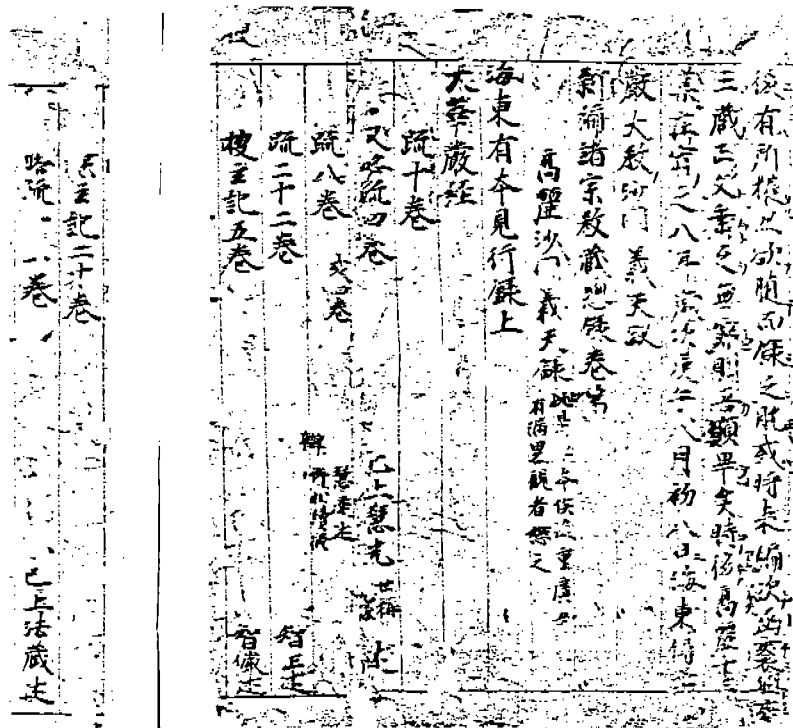 後有所獲亦欲隨而錄之脫或將來編次函袠
三藏正文垂之無窮則吾願畢矣時後高麗十三
葉在宥之八年歲次庚午八月初八日海東傳
嚴大教沙門 義天 敘
新編諸宗教藏總錄卷第
高麗沙門 義天 錄
有漏略觀者恕之
海東有本見行錄上
大華嚴經
疏十卷
又略疏四卷 已上慧光 世稱 述
疏八卷 或四卷 慧遠述
疏二十二卷 智正述
搜玄記五卷 智儼述
玄記二十卷
略疏 一卷 已上法藏述